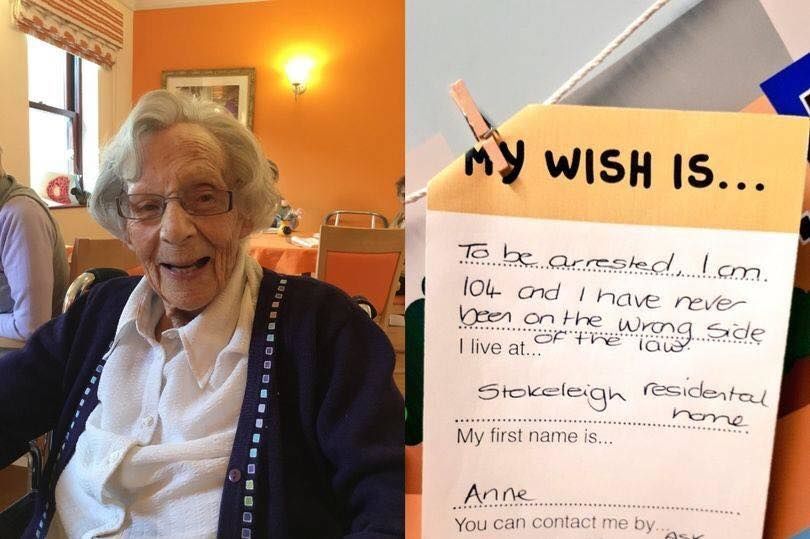 MY WISH IS...
To be arrested, I am.
104 and I have never
been on the wrong side
of the law.
I live at...
Stokeleigh residental
home
My first name is...
Anne
You can contact me by... ASK